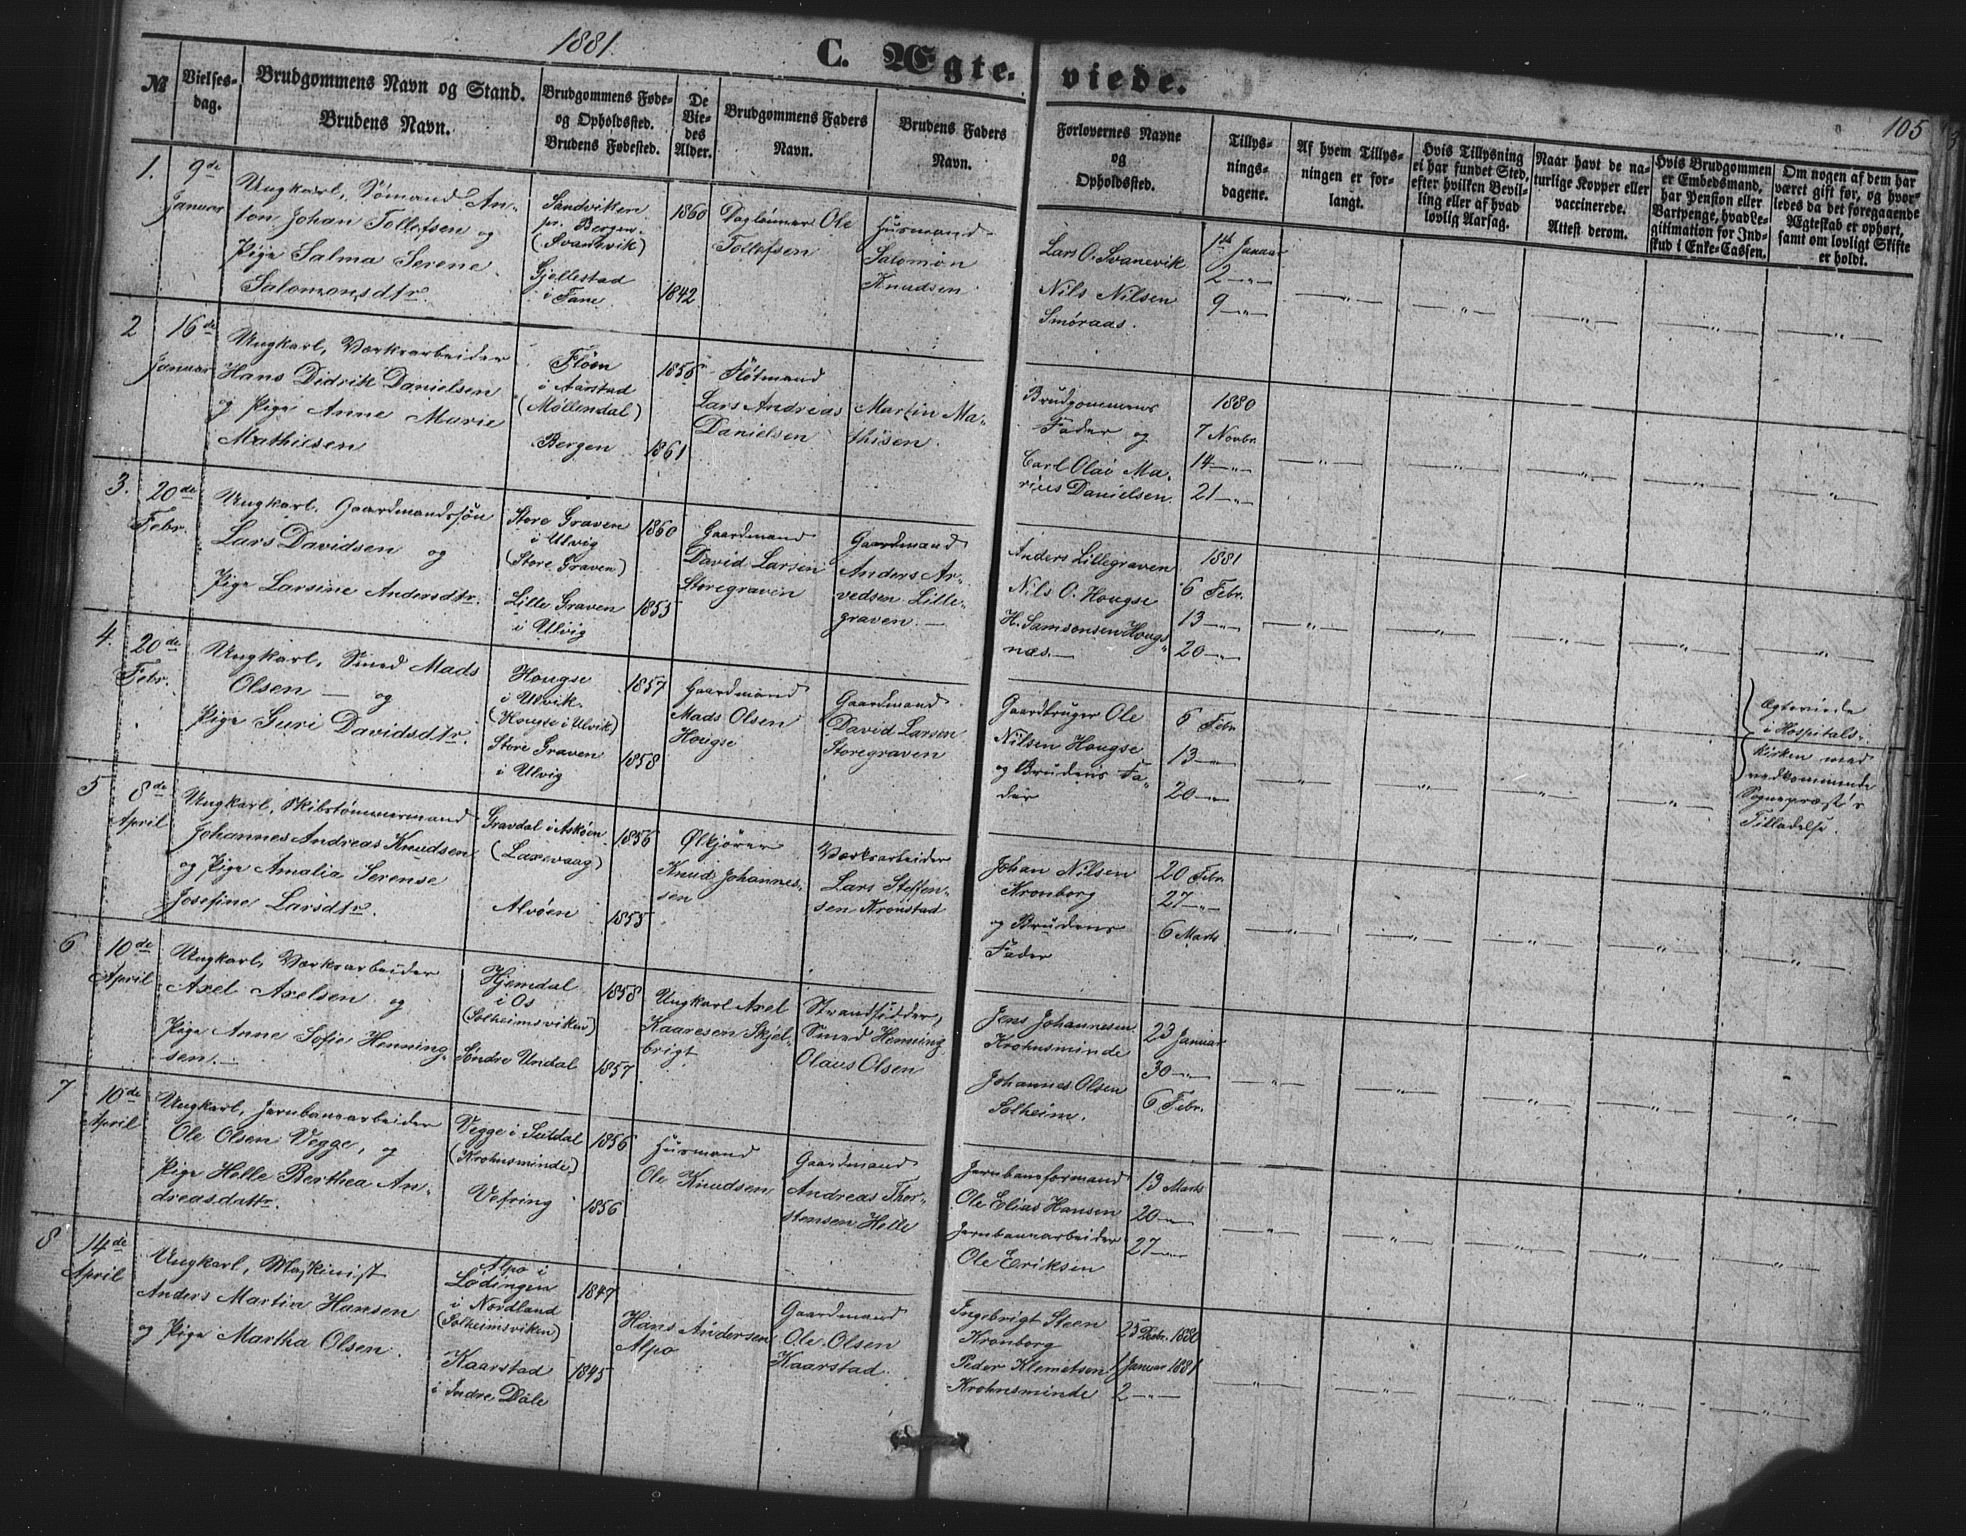 1881.
C. Ægte-
viede.
105
№
Vielses-
dag.
Brudgommens Navn og Stand.
Brudens Navn.
Brudgommens Føde-
og Opholdssted.
Brudens Fødested.
De
Vie-
des
Alder.
Brudgommens Faders
Navn.
Brudens Faders
Navn.
Forlovernes Navne
og
Opholdssted.
Tillys-
nings-
dagene.
Af hvem Tillys-
ningen er for-
langt.
Hvis Tillysning
ei har fundet Sted,
efter hvilken Bevil-
ling eller af hvad
lovlig Aarsag.
Naar havt de na-
turlige Kopper eller
vaccinerede.
Attest derom.
Hvis Brudgommen
er Embedsmand,
har Pension eller
Vartpenge, hvad Le-
gitimation for Ind-
skud i Enke-Cassen.
Om nogen af dem har
været gift før, og hvor-
ledes da det foregaaende
Ægteskab er ophørt,
samt om lovligt Skifte
er holdt.
1.
9de
Januar
Ungkarl, Sømand An-
ton Johan Tollefsen og
Pige Salma Serene
Salomonsdtr.
Sandviken
pr. Bergen.
(Svanevik)
Gjellestad
i Fane
1860
1842
Dagleiner Ole
Tollefsen
Husmand
Salomon
Knudsen
Lars O. Svanevik
Nils Nilsen
Smøraas.
1ste Januar
2 —„—
9 —„—
2
16de
Januar
Ungkarl, Værksarbeider
Hans Didrik Danielsen
og Pige Anne Marie
Mathiesen
Fløen
i Aarstad
(Møllendal)
Bergen
1858
1861
Fløtmand
Lars Andreas
Danielsen
Martin Ma-
thisen
Brudgommens
Fader og
Carl Olai Ma-
rius Danielsen
1880
7 Novbr.
14 —„—
21 —„—
3.
20de
Febr.
Ungkarl, Gaardmandssøn
Lars Davidsen og
Pige Larsine Andersdtr.
Store Graven
i Ulvig
(Store Graven)
Lille Graven
i Ulvig
1860
1855
Gaardmand
David Larsen
Storegraven
Gaardmand
Anders Ar-
vedsen Lille-
graven.—
Anders Lillegraven
Nils O. Hougse
H. Samsonsen Houg-
næs.—
1881
6 Febr.
13 —„—
20 —„—
4.
20de
Febr.
Ungkarl, Smed Mads
Olsen — og
Pige Guri Davidsdtr.
Hougse
i Ulvik.
(Hougse i Ulvik)
Store Graven
i Ulvig
1857
1858
Gaardmand
Mads Olsen
Hougse
Gaardmand
David Larsen
Storegraven
Gaardbruger Ole
Nilsen Hougse
og Brudens Fa-
der
6 Febr.
13 —„—
20 —„—
Ægteviede
i Hospitals-
kirken med
vedkommende
Sognepræst's
Tilladelse.
5
8de
April
Ungkarl, Skibstømmermand
Johannes Andreas Knudsen
og Pige Amalia Serense
Josefine Larsdtr.
Gravdal i Askøen
(Laxevaag)
Alvøen
1856
1855
Ølkjører
Knud Johannes-
sen
Værksarbeider
Lars Steffen-
sen Kronstad
Johan Nilsen
Kronborg
og Brudens
Fader
20 Febr.
27 —„—
6 Marts
6
10de
April
Ungkarl, Værksarbeider
Axel Axelsen og
Pige Anne Sofie Henning-
sen.—
Hjemdal
i Os
(Solheimsviken)
Søndre Undal
1858
1857
Ungkarl Axel
Kaaresen Skjel-
brigt
Strandsidder,
Smed Henning
Olaus Olsen
Jens Johannesen
Krohnsminde
Johannes Olsen
Solheim.
23 Januar
30 —„—
6 Febr.
7
10de
April
Ungkarl, Jernbanearbeider
Ole Olsen Vegge, og
Pige Helle Berthea An-
dreasdattr.
Vegge i
(Krohnsminde)
Vefring
1856
1856
Husmand
Ole Knudsen
Gaardmand
Andreas Thor-
stensen Helle
Jernbaneformand
Ole Elias Hansen
Jernbanearbeider
Ole Eriksen
13 Marts
20 —„—
27 —„—
8
14de
April
Ungkarl, Maskinist
Anders Martin Hansen
og Pige Martha Olsen.
Alpo i
Lødingen
i Nordland
(Solheimsviken)
Kaarstad
i Indre Dale
1847
1845
Hans Andersen
Alpo
Gaardmand
Ole Olsen
Kaarstad.
Ingebrigt Steen
Kronborg
Peder Klemetsen
Krohnsminde
25 Decbr. 1880
1 Januar 1881
2 —„—